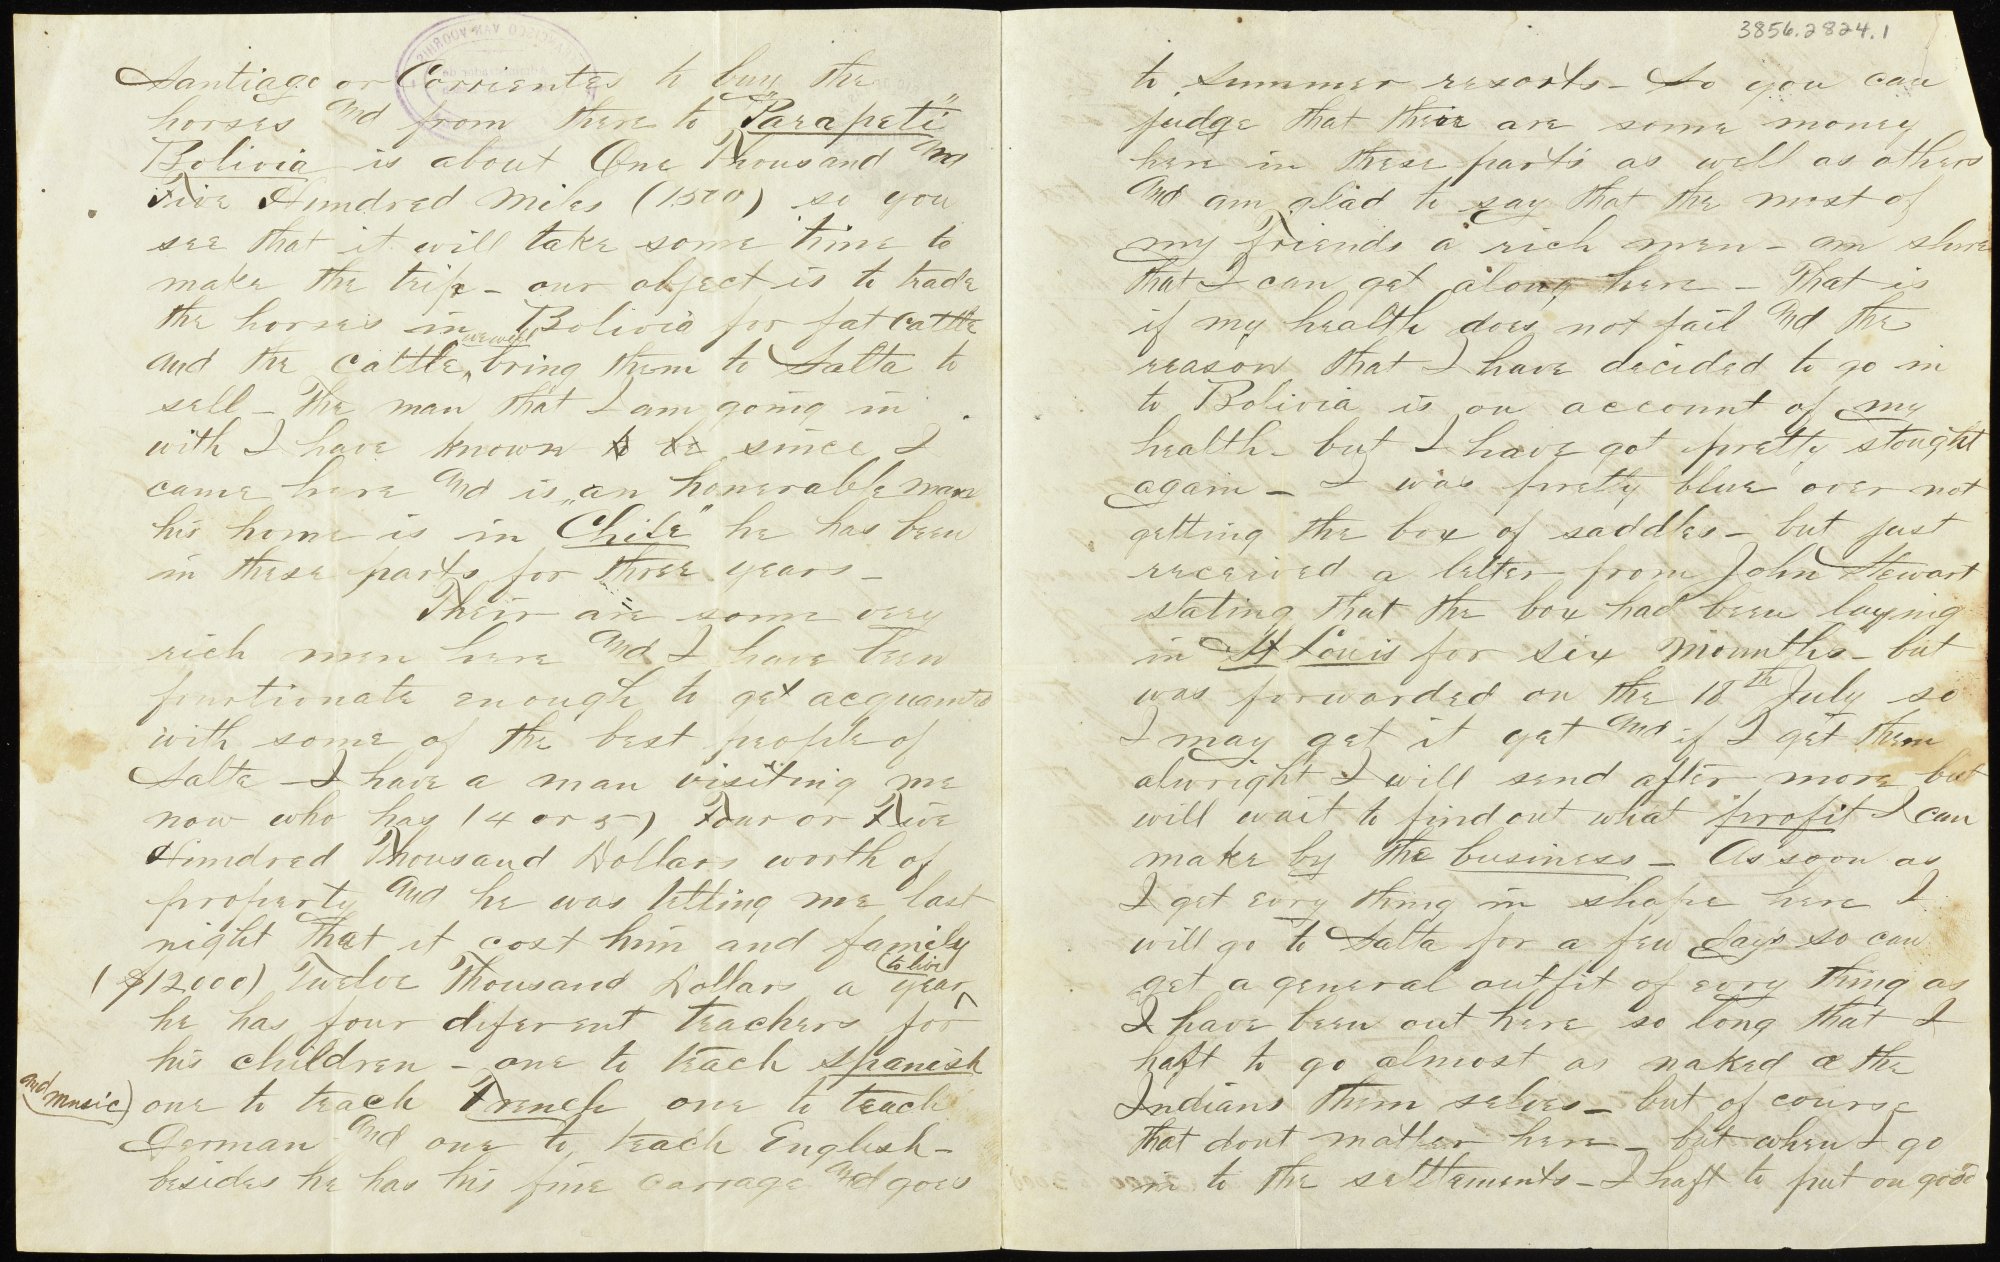 Santiago or Corrientes to buy the
horses and from there to "Parapeti"
Bolivia is about One Thousand and
Five Hundred Miles (1500) so you
see that it will take some time to
make the trip - our object is to trade
the horses in Bolivia for fat cattle
and the cattle, we will bring them to Salta to
sell - The man that I am going in
with I have known since I
came here and is an honerable man
his home is in "Chile" he has been
in these parts for three years -
Their are some very
rich men here and I have been
fourtionate enough to get acquainted
with some of the best people of
Salta - I have a man visiting me
now who has (4 or 5) Four or Five
Hundred Thousand Dollars worth of
property and he was telling me last
night that it cost him and family
($12000) Twelve Thousand Dollars a year to live
he has four diferent teachers for
his children - one to teach Spanish
and music) one to teach French one to teach
German and one to teach English -
besides he has his fine carrage and goes
3856.2824.1
to summer resorts - So you can
judge that there are some money
here in these parts as well as others
and am glad to say that the most of
my friends a rich men - am shure
that I can get along here - That is
if my health does not fail and the
reason that I have decided to go in
to Bolivia is on account of my
health - but I have got pretty stought
again - I was pretty blue over not
getting the box of saddles - but just
received a letter from John Stewart
stating that the box had been laying
in St Louis for six mounths - but
was forwarded on the 18th July so
I may get it yet and if I get them
alwright I will send after more but
will wait to find out what profit I can
make by the business - As soon as
I get evry thing in shape here I
will go to Salta for a few days so can
get a general outfit of evry thing as
I have been out here so long that I
haft to go almost as naked a the
Indians them selves - but of course
that dont matter here - but when I go
in to the settlements - I haft to put on good